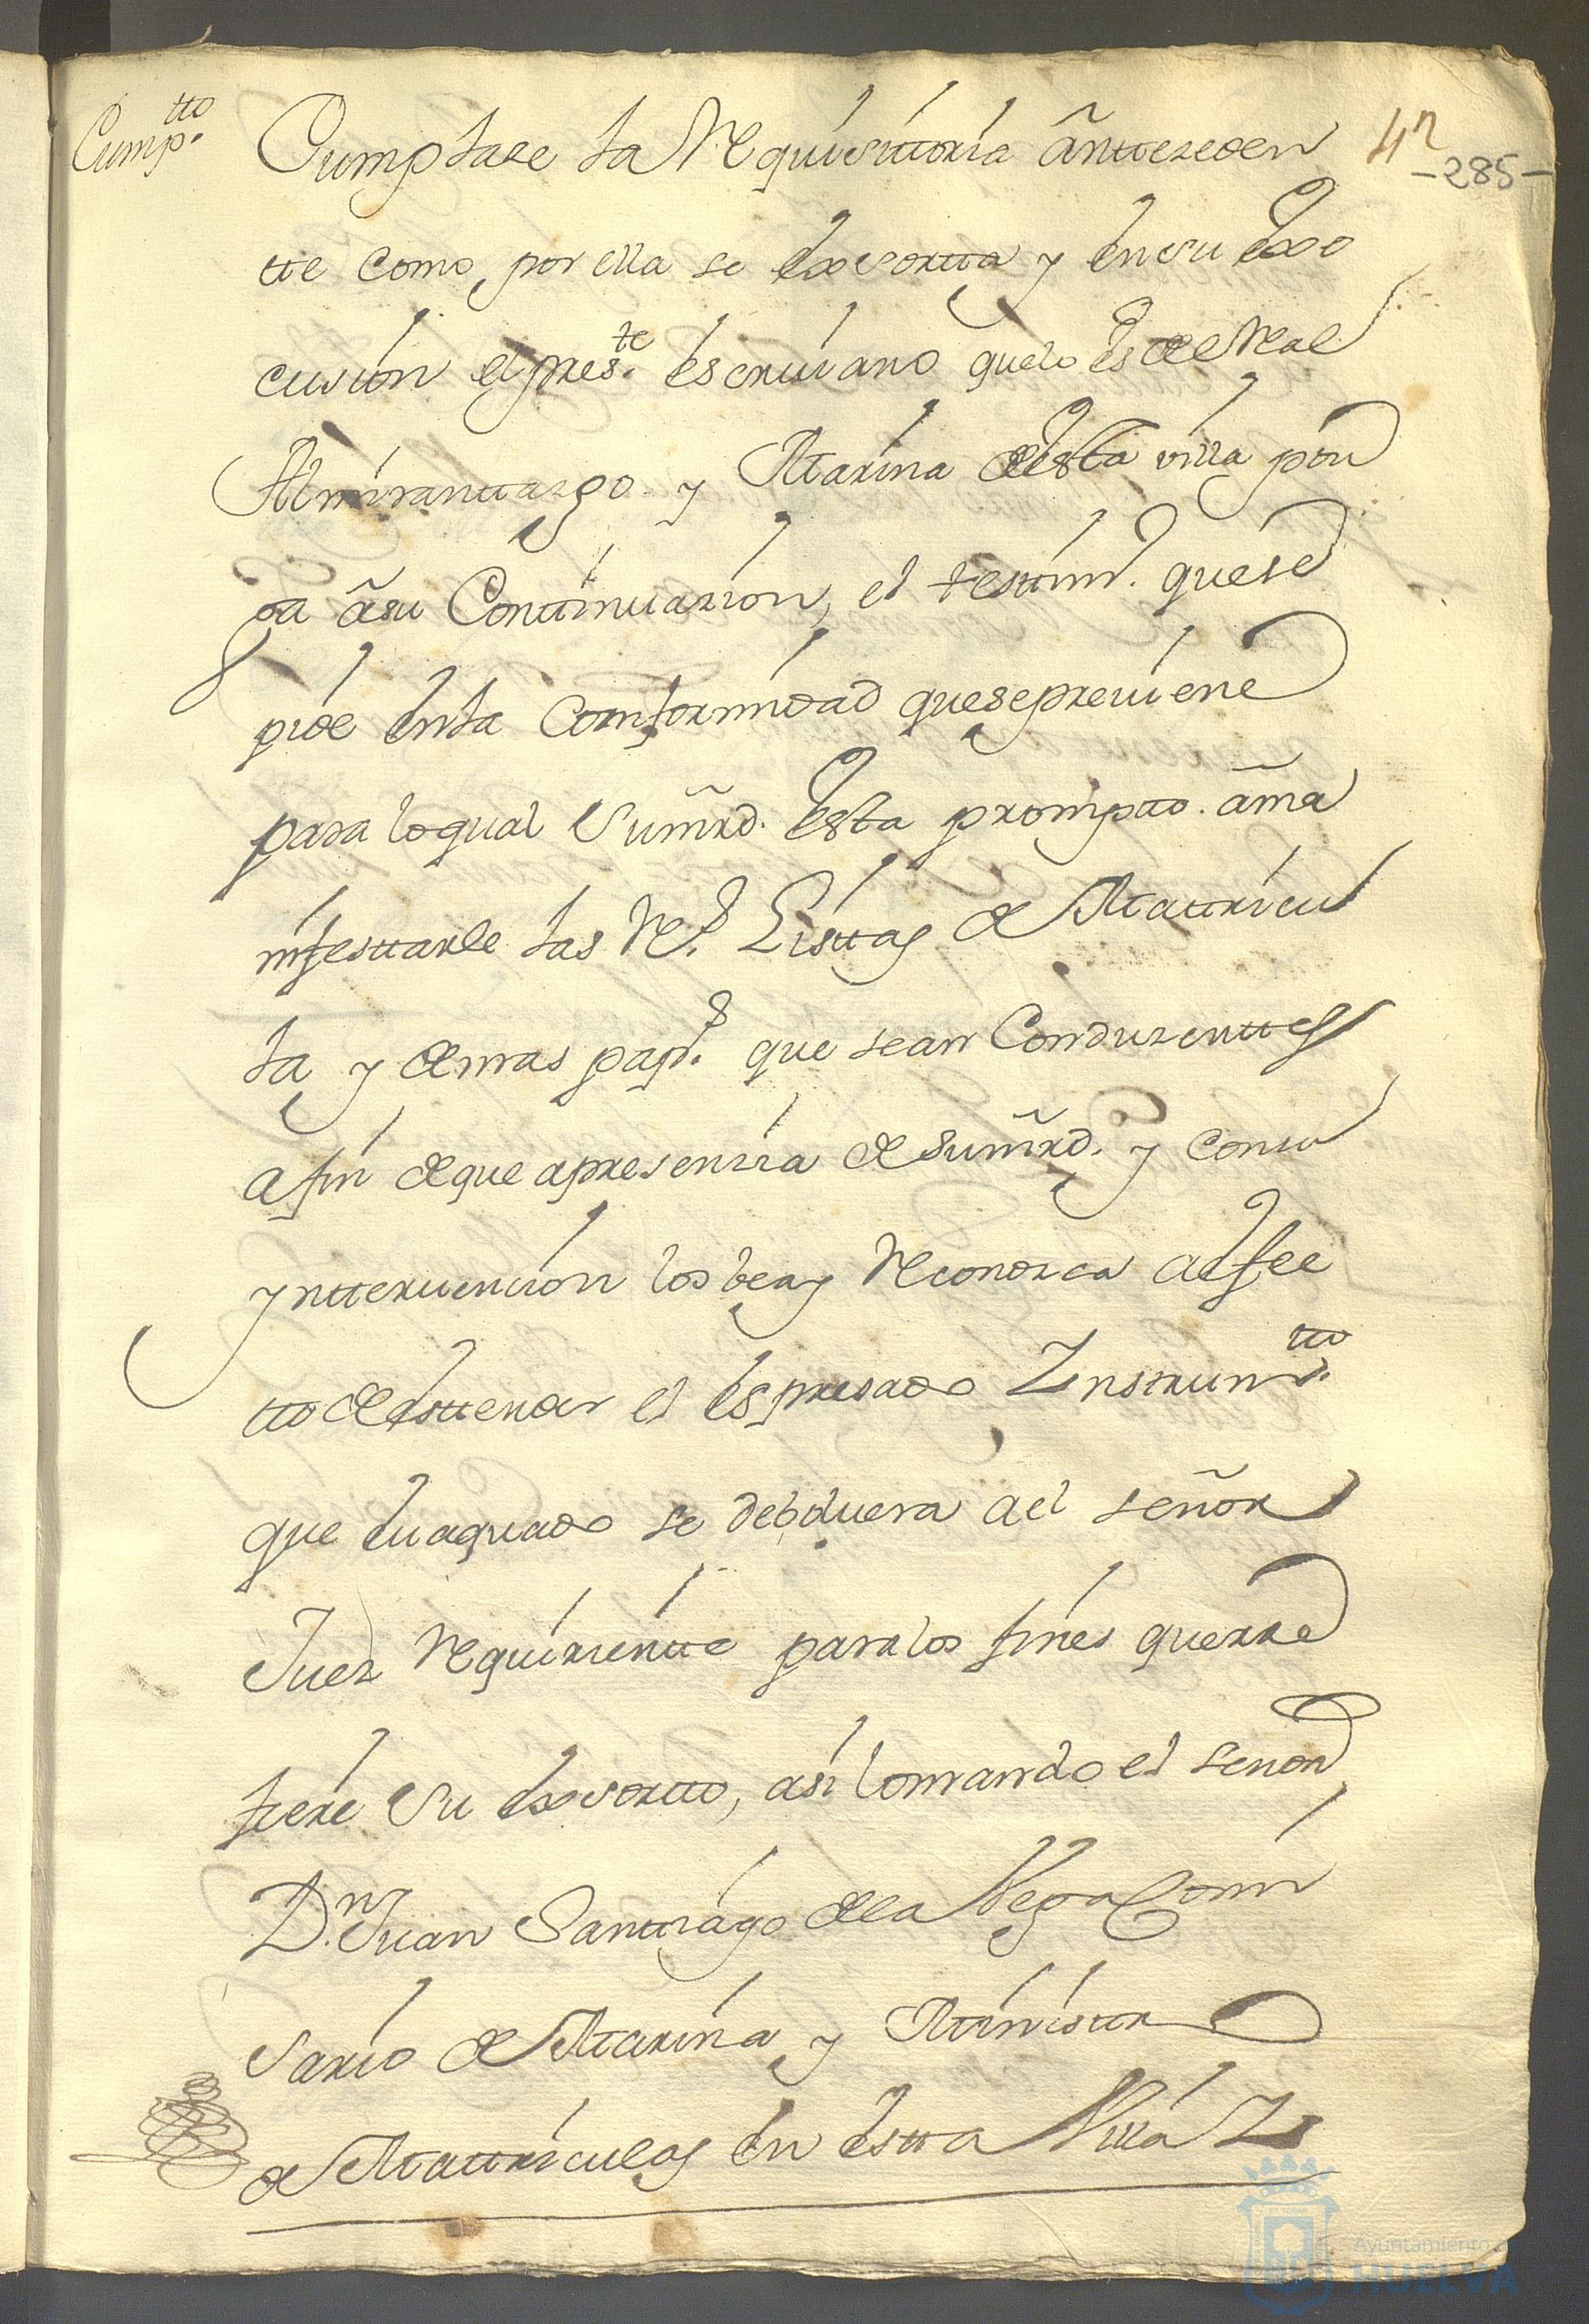 Cump.tto
Cumplase la Requisittoria anttezeden
42
-285-
tte como por ella se exsortta y en su exe
cusion el pres.te escriuano que lo es de el Real
Almiranttazgo y Marina de esta villa pon
ga a su Conttinuazion, el testtim.o que se
pide en la Comformidad que se preuiene
para lo qual Su mrd. esta prompto. a ma
nifesttarle las R.s Listtas de Mattricu
la y demas pap.s que sean Conduzenttes
a fin de que a presenzia de su mrd. y con su
ynttervencion los bea y Reconozca a efec
tto de esttender el espresado Instrum.tto
que euaquado se deboluera a el señor
Juez Requirientte para los fines que rre
fiere su exsortto, asi lo mando el señor
D.n Juan Santtiago de la Vega Comi
sario de Marina y Ministtro
de Mattriculas en estta Villa I
Ayuntamiento de
HUELVA